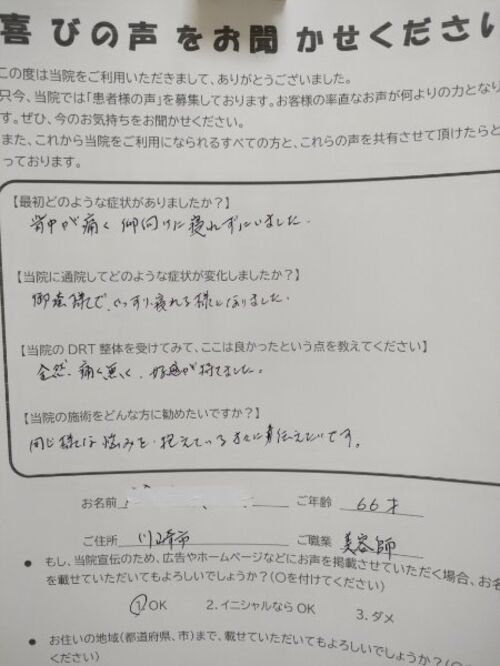 喜びの声をお聞かせください
この度は当院をご利用いただきまして、ありがとうございました。
只今、当院では「患者様の声」を募集しております。お客様の率直なお声が何よりの力となり
す。ぜひ、今のお気持ちをお聞かせください。
また、これから当院をご利用になられるすべての方と、これらの声を共有させて頂けたらと
っております。
【最初どのような症状がありましたか?】
背中が痛く仰向けに寝れずにいました.
【当院に通院してどのような症状が変化しましたか?】
御蔭様で、ぐっすり寝れる様になりました.
【当院の DRT 整体を受けてみて、ここは良かったという点を教えてください】
全然、痛く無く、好感が持てました.
【当院の施術をどんな方に勧めたいですか?】
同じ様な悩みを抱えている方々に伝えたいです。
お名前
ご年齢 66才
ご住所 川崎市
ご職業 美容師
● もし、当院宣伝のため、広告やホームページなどにお声を掲載させていただく場合、お名
を載せていただいてもよろしいでしょうか?(○を付けてください)
1. OK 2. イニシャルなら OK 3. ダメ
● お住いの地域(都道府県、市)まで、載せていただいてもよろしいでしょうか?(○
ください)